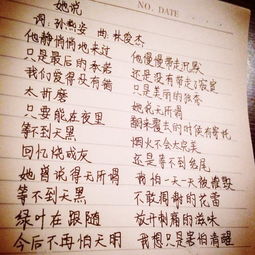 NO. DATE
她说
词:孙燕姿 曲:林俊杰
他静悄悄地来过 他慢慢带走沉默
只是最后的承诺 还是没有带走了寂寞
我们爱得没有错 只是美丽的独奏
太折磨 她说无所谓
只要能在夜里 翻来覆去的时候有寄托
等不到天黑 烟火不会太完美
回忆烧成灰 还是等不到结尾
她曾说得无所谓 我怕一天一天被摧毁
等不到天黑 不敢凋谢的花蕾
绿叶在跟随 放开刺痛的滋味
今后不再怕天明 我想只是害怕清醒